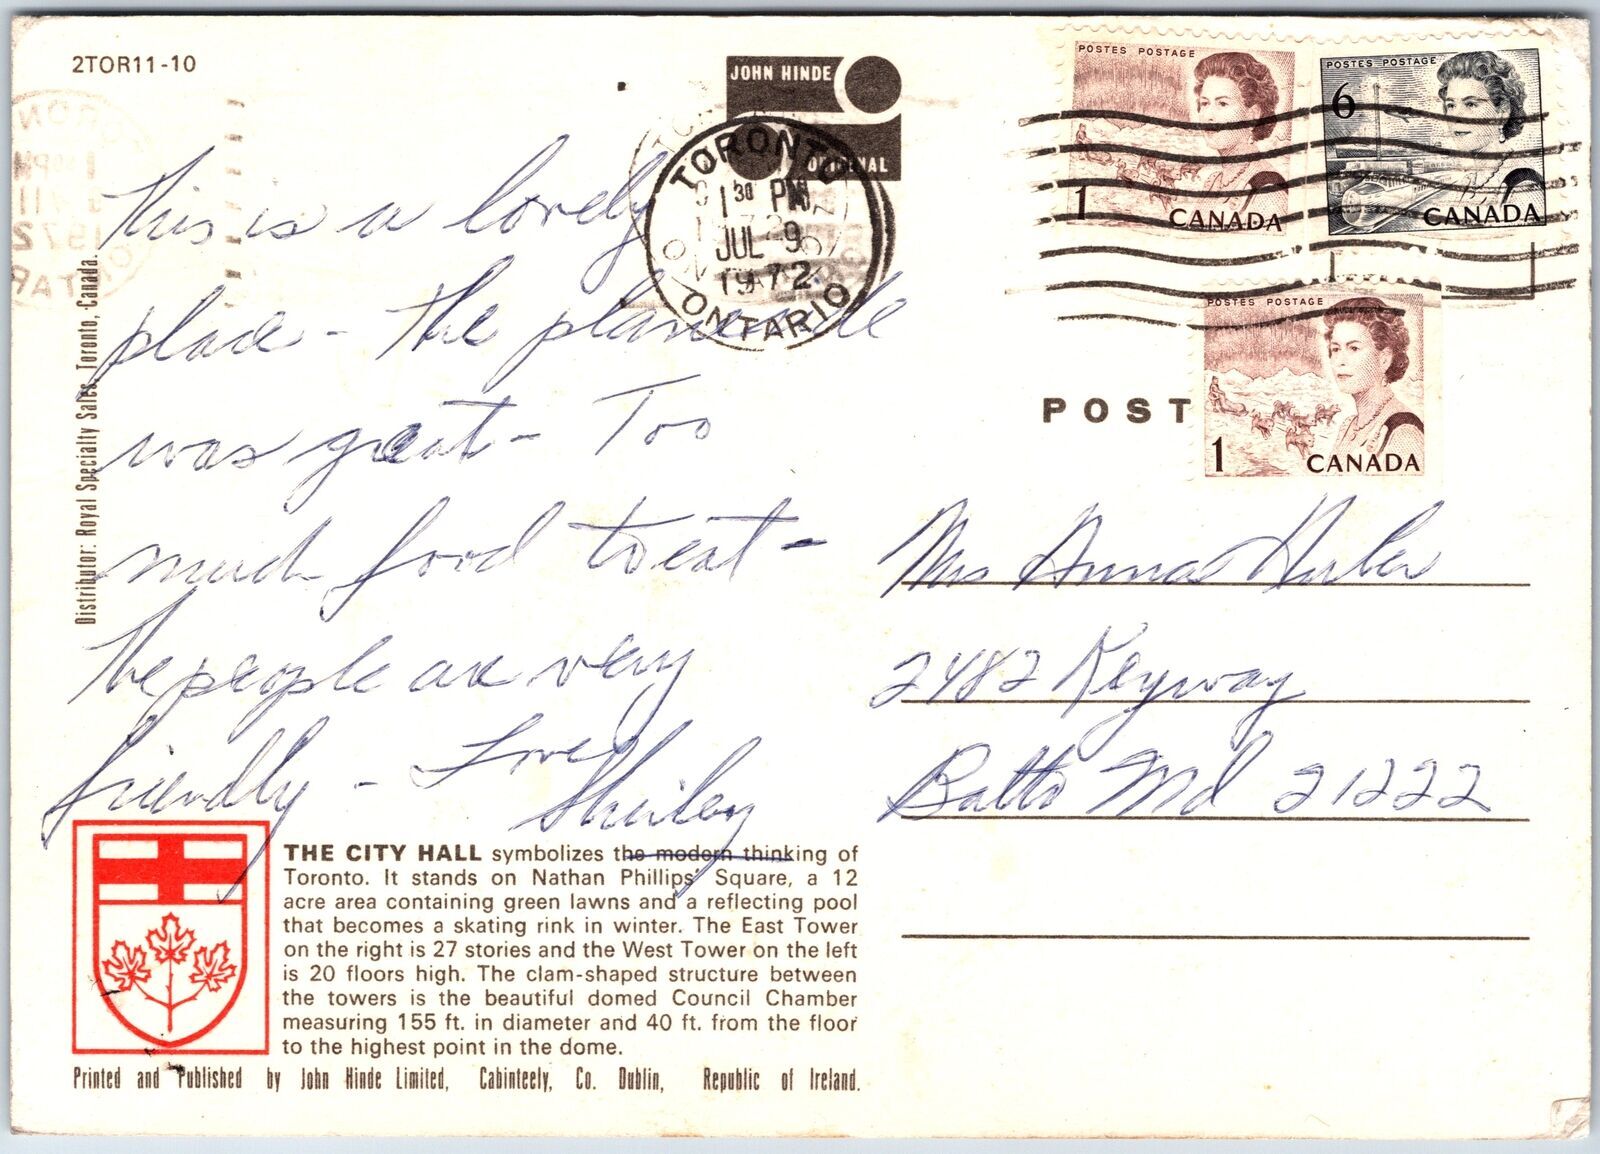 2TOR11-10
JOHN HINDE
ORIGINAL
TORONTO
1 30 PM
JUL-9
1972
ONTARIO
POSTES POSTAGE
1
CANADA
POSTES POSTAGE
6
CANADA
POSTES POSTAGE
1
CANADA
POST
This is a lovely
place - the plane ride
was great - Too
much food to eat -
The people are very
friendly - Love
Shirley
Mrs Anna Huber
2482 Keyway
Balto Md 21222
Distributor: Royal Specialty Sales, Toronto, Canada.
THE CITY HALL symbolizes the modern thinking of
Toronto. It stands on Nathan Phillips' Square, a 12
acre area containing green lawns and a reflecting pool
that becomes a skating rink in winter. The East Tower
on the right is 27 stories and the West Tower on the left
is 20 floors high. The clam-shaped structure between
the towers is the beautiful domed Council Chamber
measuring 155 ft. in diameter and 40 ft. from the floor
to the highest point in the dome.
Printed and Published by John Hinde Limited, Cabinteely, Co. Dublin, Republic of Ireland.